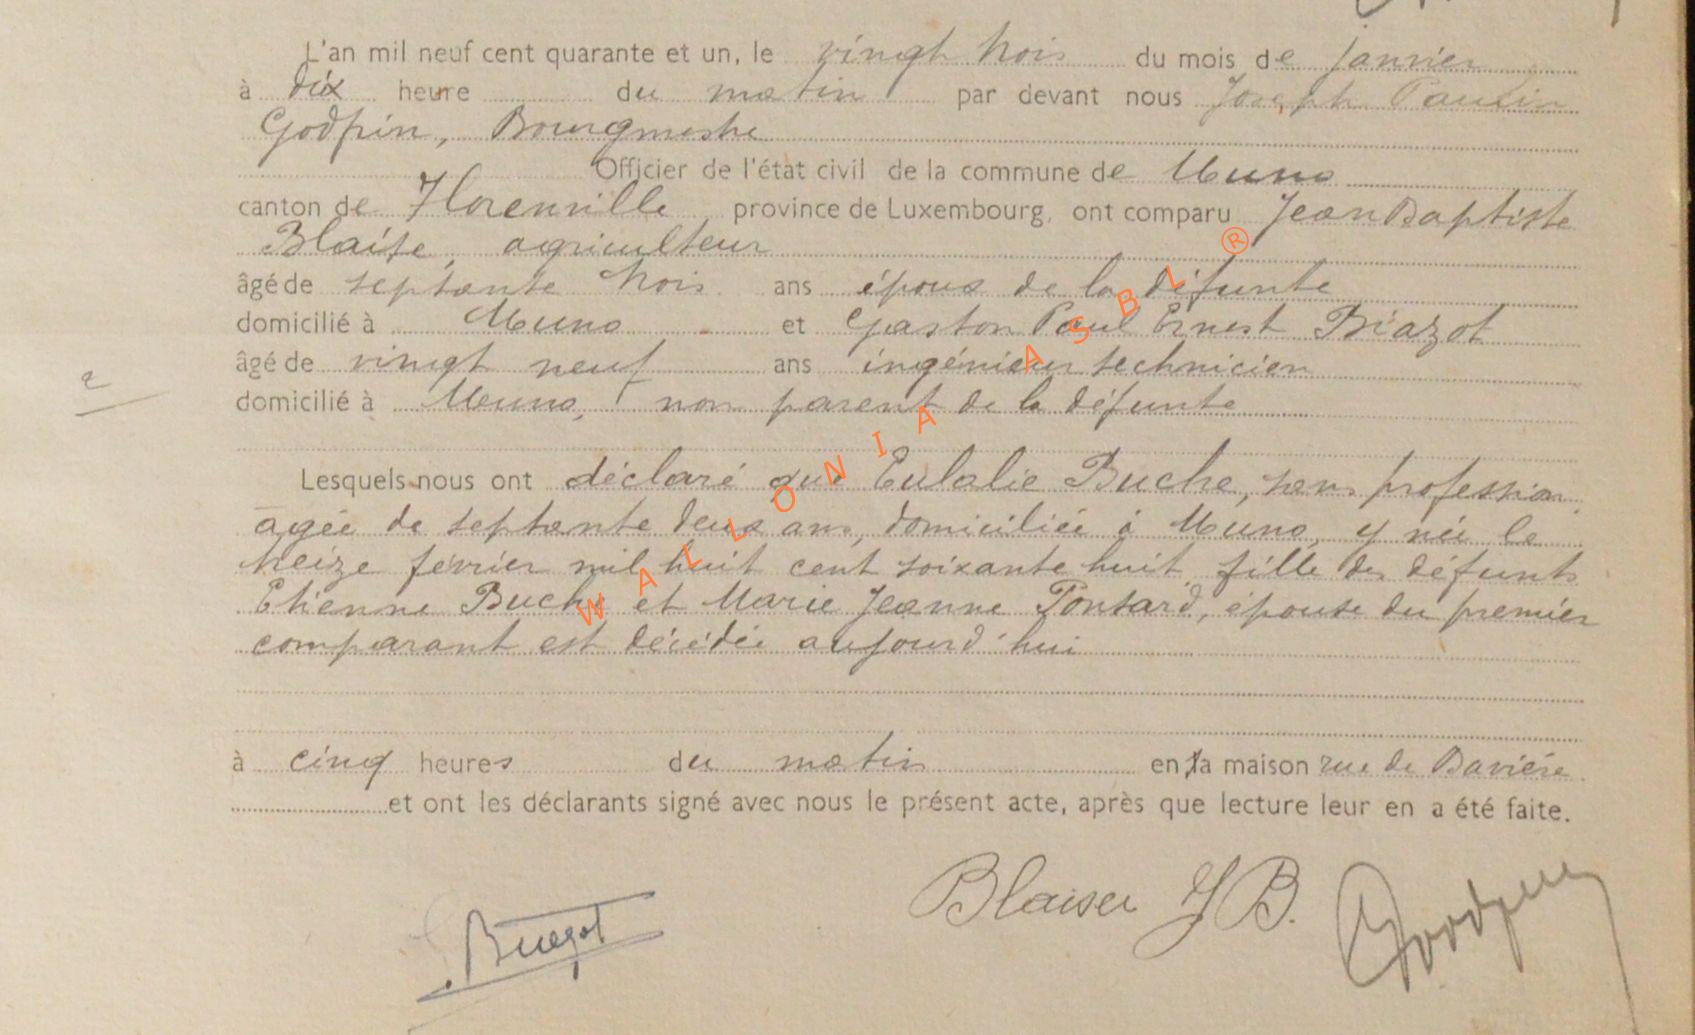 L'an mil neuf cent quarante et un, le vingt trois du mois de janvier
à dix heure du matin par devant nous Joseph Paulin
Godfrin, Bourgmestre
Officier de l'état civil de la commune de Muno
canton de Florenville province de Luxembourg, ont comparu Jean Baptiste
Blaise, agriculteur
âgé de septante trois ans époux de la défunte
domicilié à Muno et Gaston Paul Ernest Biazot
âgé de vingt neuf ans ingénieur technicien
2
domicilié à Muno, non parent de la défunte
Lesquels nous ont déclaré que Eulalie Buche, sans profession,
âgée de septante deux ans, domiciliée à Muno, y née le
treize février mil huit cent soixante huit fille des défunts
Etienne Buche et Marie Jeanne Ponsard, épouse du premier
comparant est décédée aujourd'hui
à cinq heures du matin en la maison rue de Bavière
et ont les déclarants signé avec nous le présent acte, après que lecture leur en a été faite.
Blaise J B.
WALLONIA ASBL ®